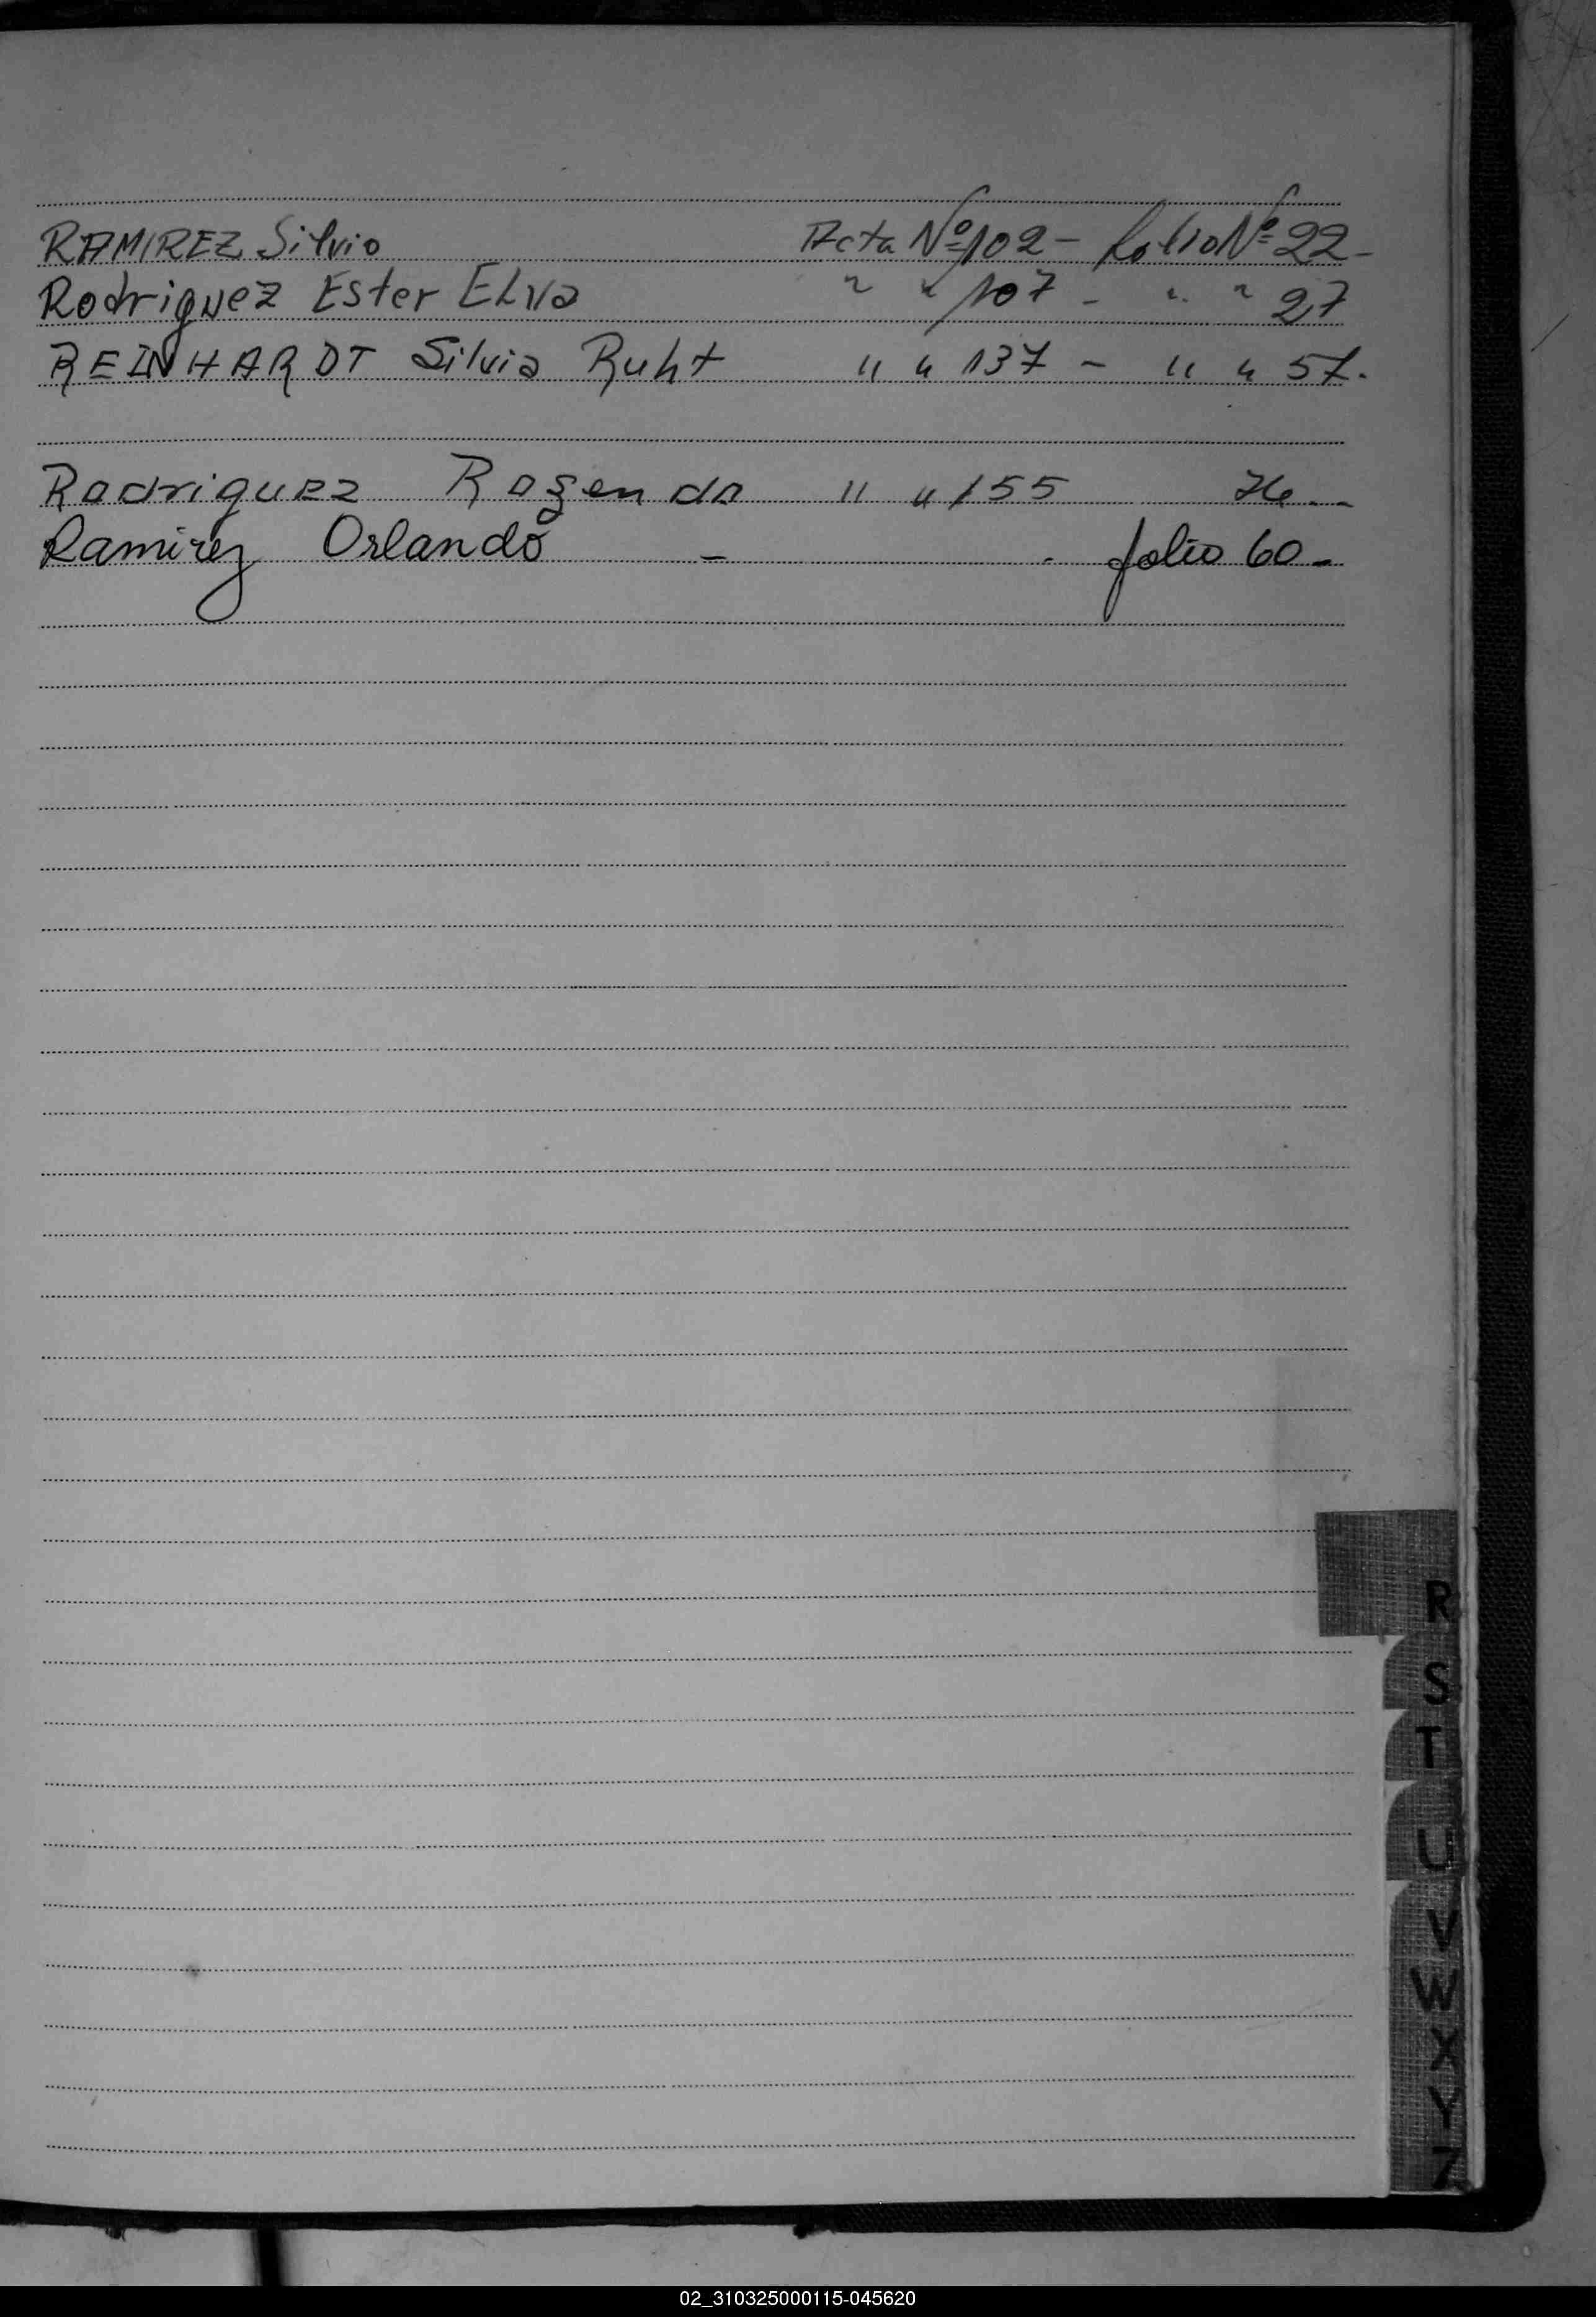 RAMIREZ Silvio Acta Nº 102 - folio Nº 22 -
Rodriguez Ester Elva " " 107 - " " 27
REINHARDT Silvia Ruht " " 137 - " " 57.
Rodriguez Rozendo " " 155
Ramirez Orlando - - folio 60 -
R
S
T
U
V
W
X
Y
Z
02_310325000115-045620